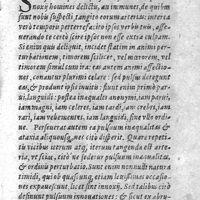 Snoxij homines delictu, au immunes, de qui bm
sunt nobis suspecti tangito eorum arteria: interea
verò tempora perterrefacito ipsos verbis tuis, asse-
nerando te certò scire ipsos non esse extra culpam.
Si enim qui deliquit, incidet statim in animi per-
turbationem, timorem scilicet, vel mœrorem, vel
timorem simul cum ira: eas autem animi affectio-
nes, conantur plurimi celare: sed pulsus detegunt
eas, & produnt indicantq; Fiunt enim primò par-
ui, languidi: postea inæquales anonymi, tum parui,
iam magni, iam celeres, iam tardi, iam crebri, iam
rari, iam vehementes, iam languidi, sine vllo ordi-
ne. Perseuerat autem ea pulsuum inæqualitas &
ataxia aliquousque, ac citò desinit. Quare repeti-
tis vicibus iterum atq; iterum tangenda est arte-
ria, vt scias, citò ne desinat pulsuum inæqualitas,
& ordinis perturbatio. Sunt enim nonnulli ita
timidi, qui ob quasuis, etiam leuissimas occasio-
nes expauescunt, licet sint innoxij. Sed talibus citò
desinunt pulsuum innouationes: & sicut ex abru-